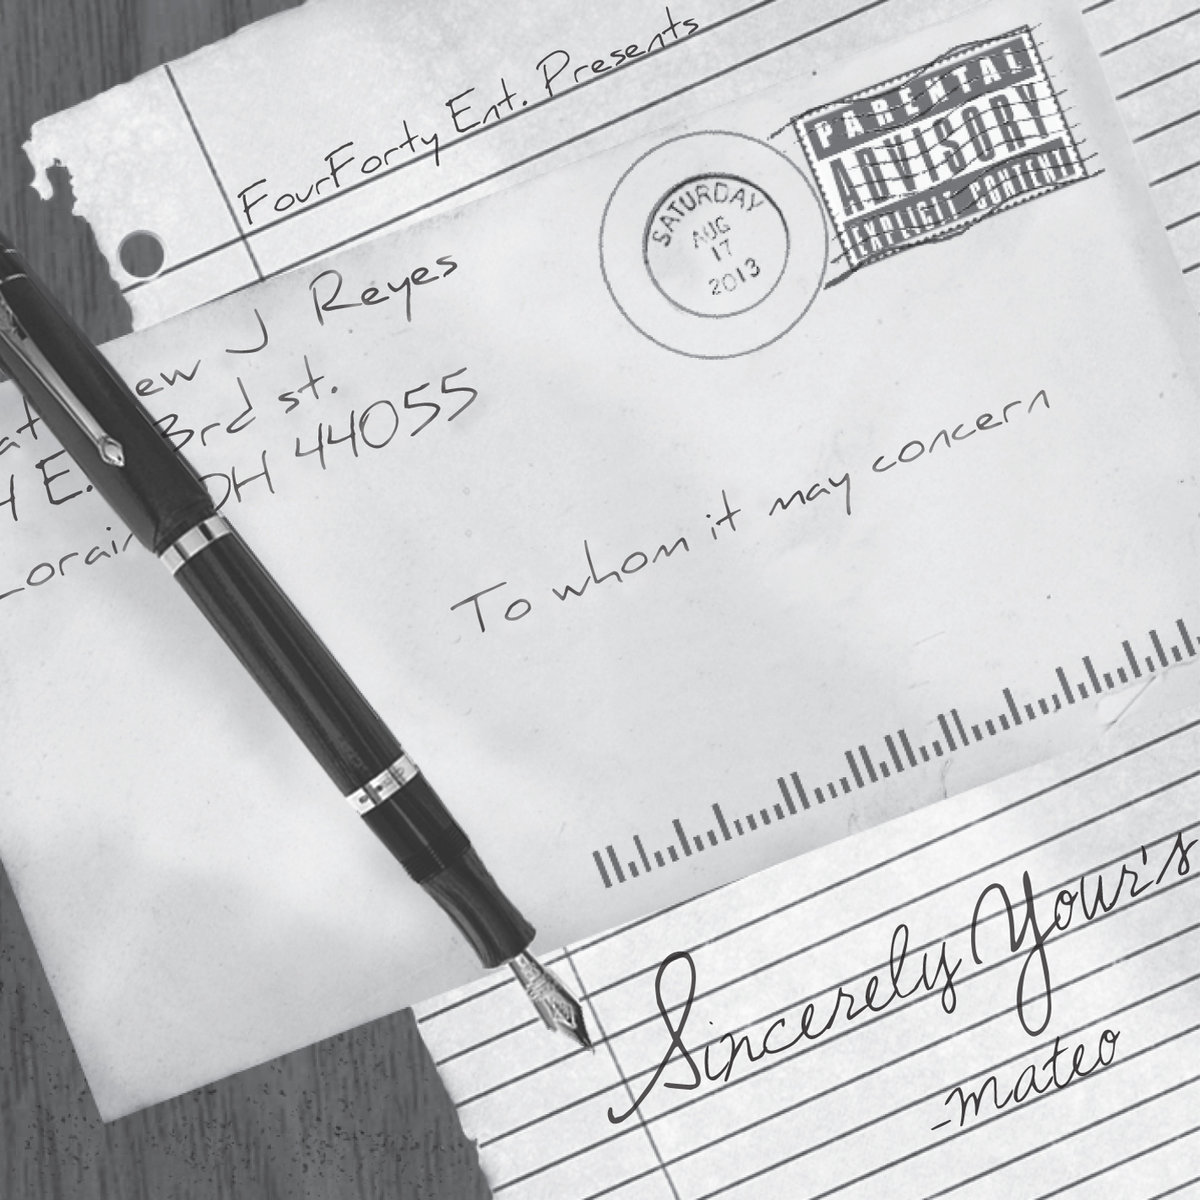 FourForty Ent. Presents
PARENTAL
ADVISORY
EXPLICIT CONTENT
SATURDAY
AUG
17
2013
J Reyes
E. 3rd st.
OH 44055
To whom it may concern
Sincerely Your's
-Mateo